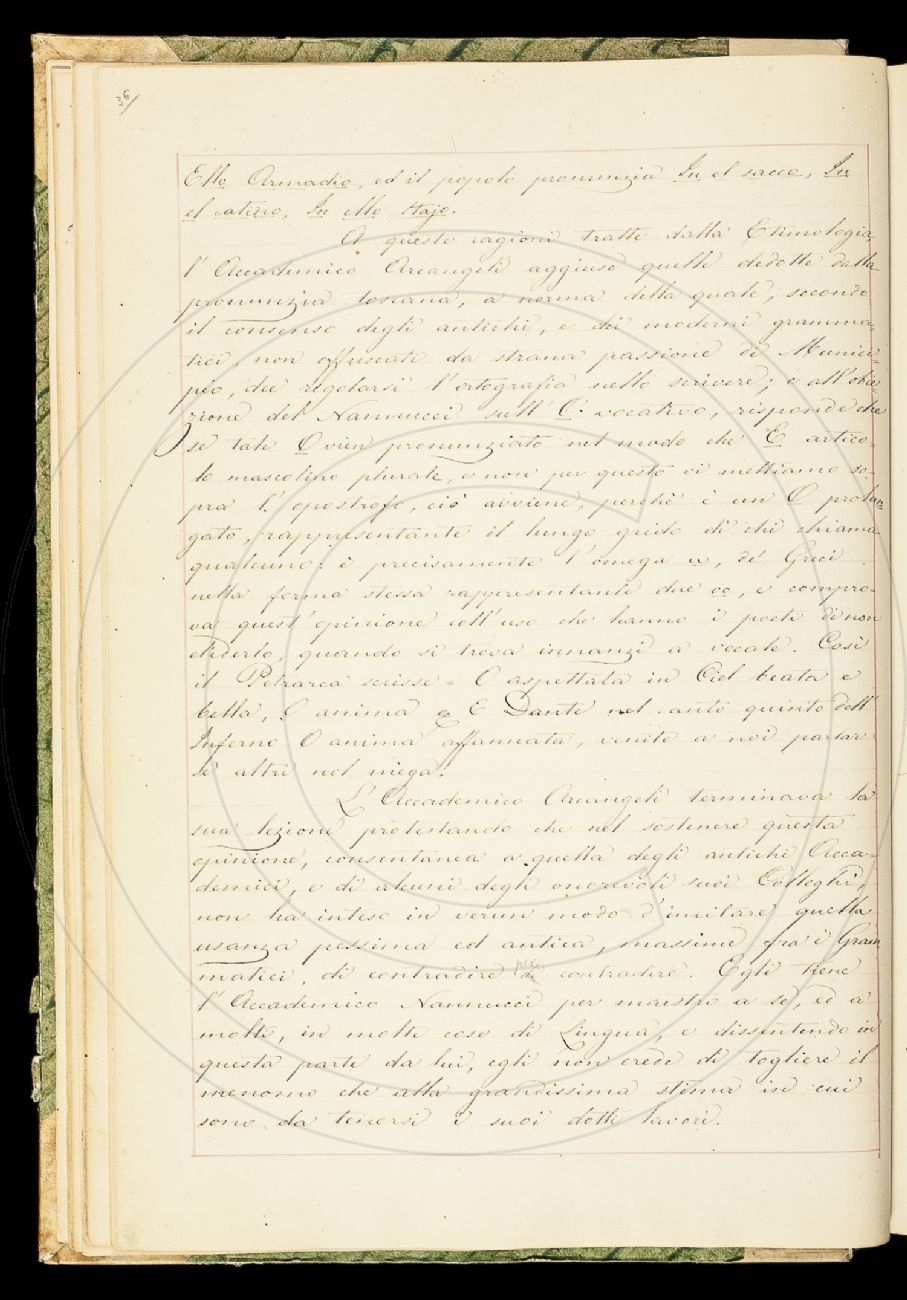 36/
Ello Armadio, ed il popolo pronunzia In el sacco, In
el catino, In ello stajo.
A queste ragioni tratte dalla Etimologia
l'Accademico Arcangeli aggiuse quelle dedotte dalla
pronunzia toscana, a norma della quale, secondo
il consenso degli antichi, e dei moderni gramma=
tici, non offuscati da strana passione di Munici=
pio, dee regolarsi l'ortografia nello scrivere; e all'obie=
zione del Nannucci sull' O vocativo, risponde che
se tale O vien pronunziato nel modo che E artico=
lo mascolino plurale, e non per questo vi mettiamo so=
pra l'apostrofo, ciò avviene, perchè è un O prolun
gato, rappresentante il lungo grido di chi chiama
qualcuno: è precisamente l'omega ω, de' Greci
nella forma stessa rappresentante due oo, e compro=
va quest'opinione coll'uso che hanno i poeti di non
eliderlo, quando si trova innanzi a vocale. Così
il Petrarca scrisse = O aspettata in Ciel beata e
bella, O anima e E Dante nel canto quinto dell'
Inferno O anima affannata, venite a noi parlar
s'altri nol niega.
L'Accademico Arcangeli terminava la
sua lezione protestando che nel sostenere questa
opinione, consentanea a quella degli antichi Acca=
demici, e di alcuni degli onorevoli suoi Colleghi,
non ha inteso in verun modo d'imitare quella
usanza pessima ed antica, massime fra i Gram
matici, di contradire per contradire. Egli tiene
l'Accademico Nannucci per maestro a se, ed a
molti, in molte cose di Lingua, e dissentendo in
questa parte da lui, egli non crede di togliere il
menomo che alla grandissima stima in cui
sono da tenersi i suoi dotti lavori.